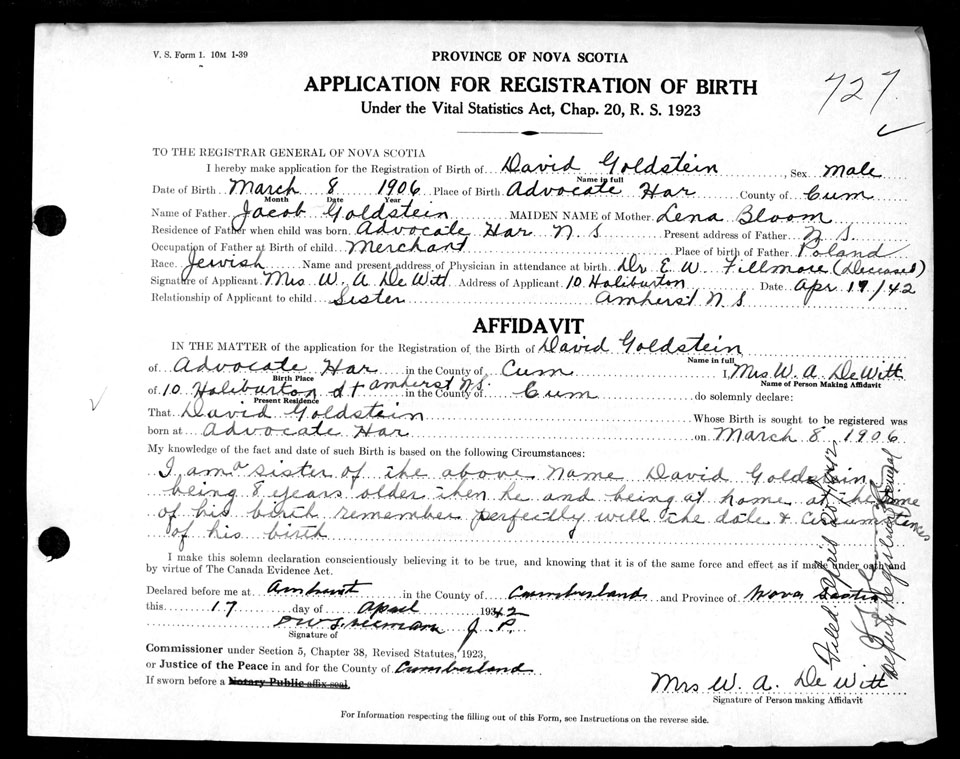 V. S. Form 1. 10M 1-39
PROVINCE OF NOVA SCOTIA
APPLICATION FOR REGISTRATION OF BIRTH
727
Under the Vital Statistics Act, Chap. 20, R. S. 1923
TO THE REGISTRAR GENERAL OF NOVA SCOTIA
I hereby make application for the Registration of Birth of David Goldstein, Sex Male
Name in full
Date of Birth March 8 1906 Place of Birth Advocate Har County of Cum
Month Date Year
Name of Father Jacob Goldstein MAIDEN NAME of Mother Lena Bloom
Residence of Father when child was born Advocate Har N S Present address of Father N. S.
Occupation of Father at Birth of child Merchant Place of birth of Father Poland
Race Jewish Name and present address of Physician in attendance at birth Dr E. W Fillmore (Deceased)
Signature of Applicant Mrs W. A DeWitt Address of Applicant 10 Haliburton Date Apr 17/42
Relationship of Applicant to child Sister Amherst N S
AFFIDAVIT
IN THE MATTER of the application for the Registration of the Birth of David Goldstein
Name in full
of Advocate Har in the County of Cum I, Mrs W. A. DeWitt
Birth Place Name of Person Making Affidavit
of 10 Haliburton St Amherst N.S. in the County of Cum do solemnly declare:
Present Residence
That David Goldstein Whose Birth is sought to be registered was
born at Advocate Har on March 8, 1906
My knowledge of the fact and date of such Birth is based on the following Circumstances:
I am a sister of the above Name David Goldstein
being 8 years older then he and being at home at the time
of his birth remember perfectly well the date & circumstances
of his birth
I make this solemn declaration conscientiously believing it to be true, and knowing that it is of the same force and effect as if made under oath and
by virtue of The Canada Evidence Act.
Declared before me at Amherst in the County of Cumberland and Province of Nova Scotia
this 17 day of April 1942
J. P.
Signature of
Commissioner under Section 5, Chapter 38, Revised Statutes, 1923,
or Justice of the Peace in and for the County of Cumberland
If sworn before a Notary Public affix seal.
Mrs W. A. DeWitt
Signature of Person making Affidavit
For Information respecting the filling out of this Form, see Instructions on the reverse side.
Filed April 20 1942
Deputy Registrar General